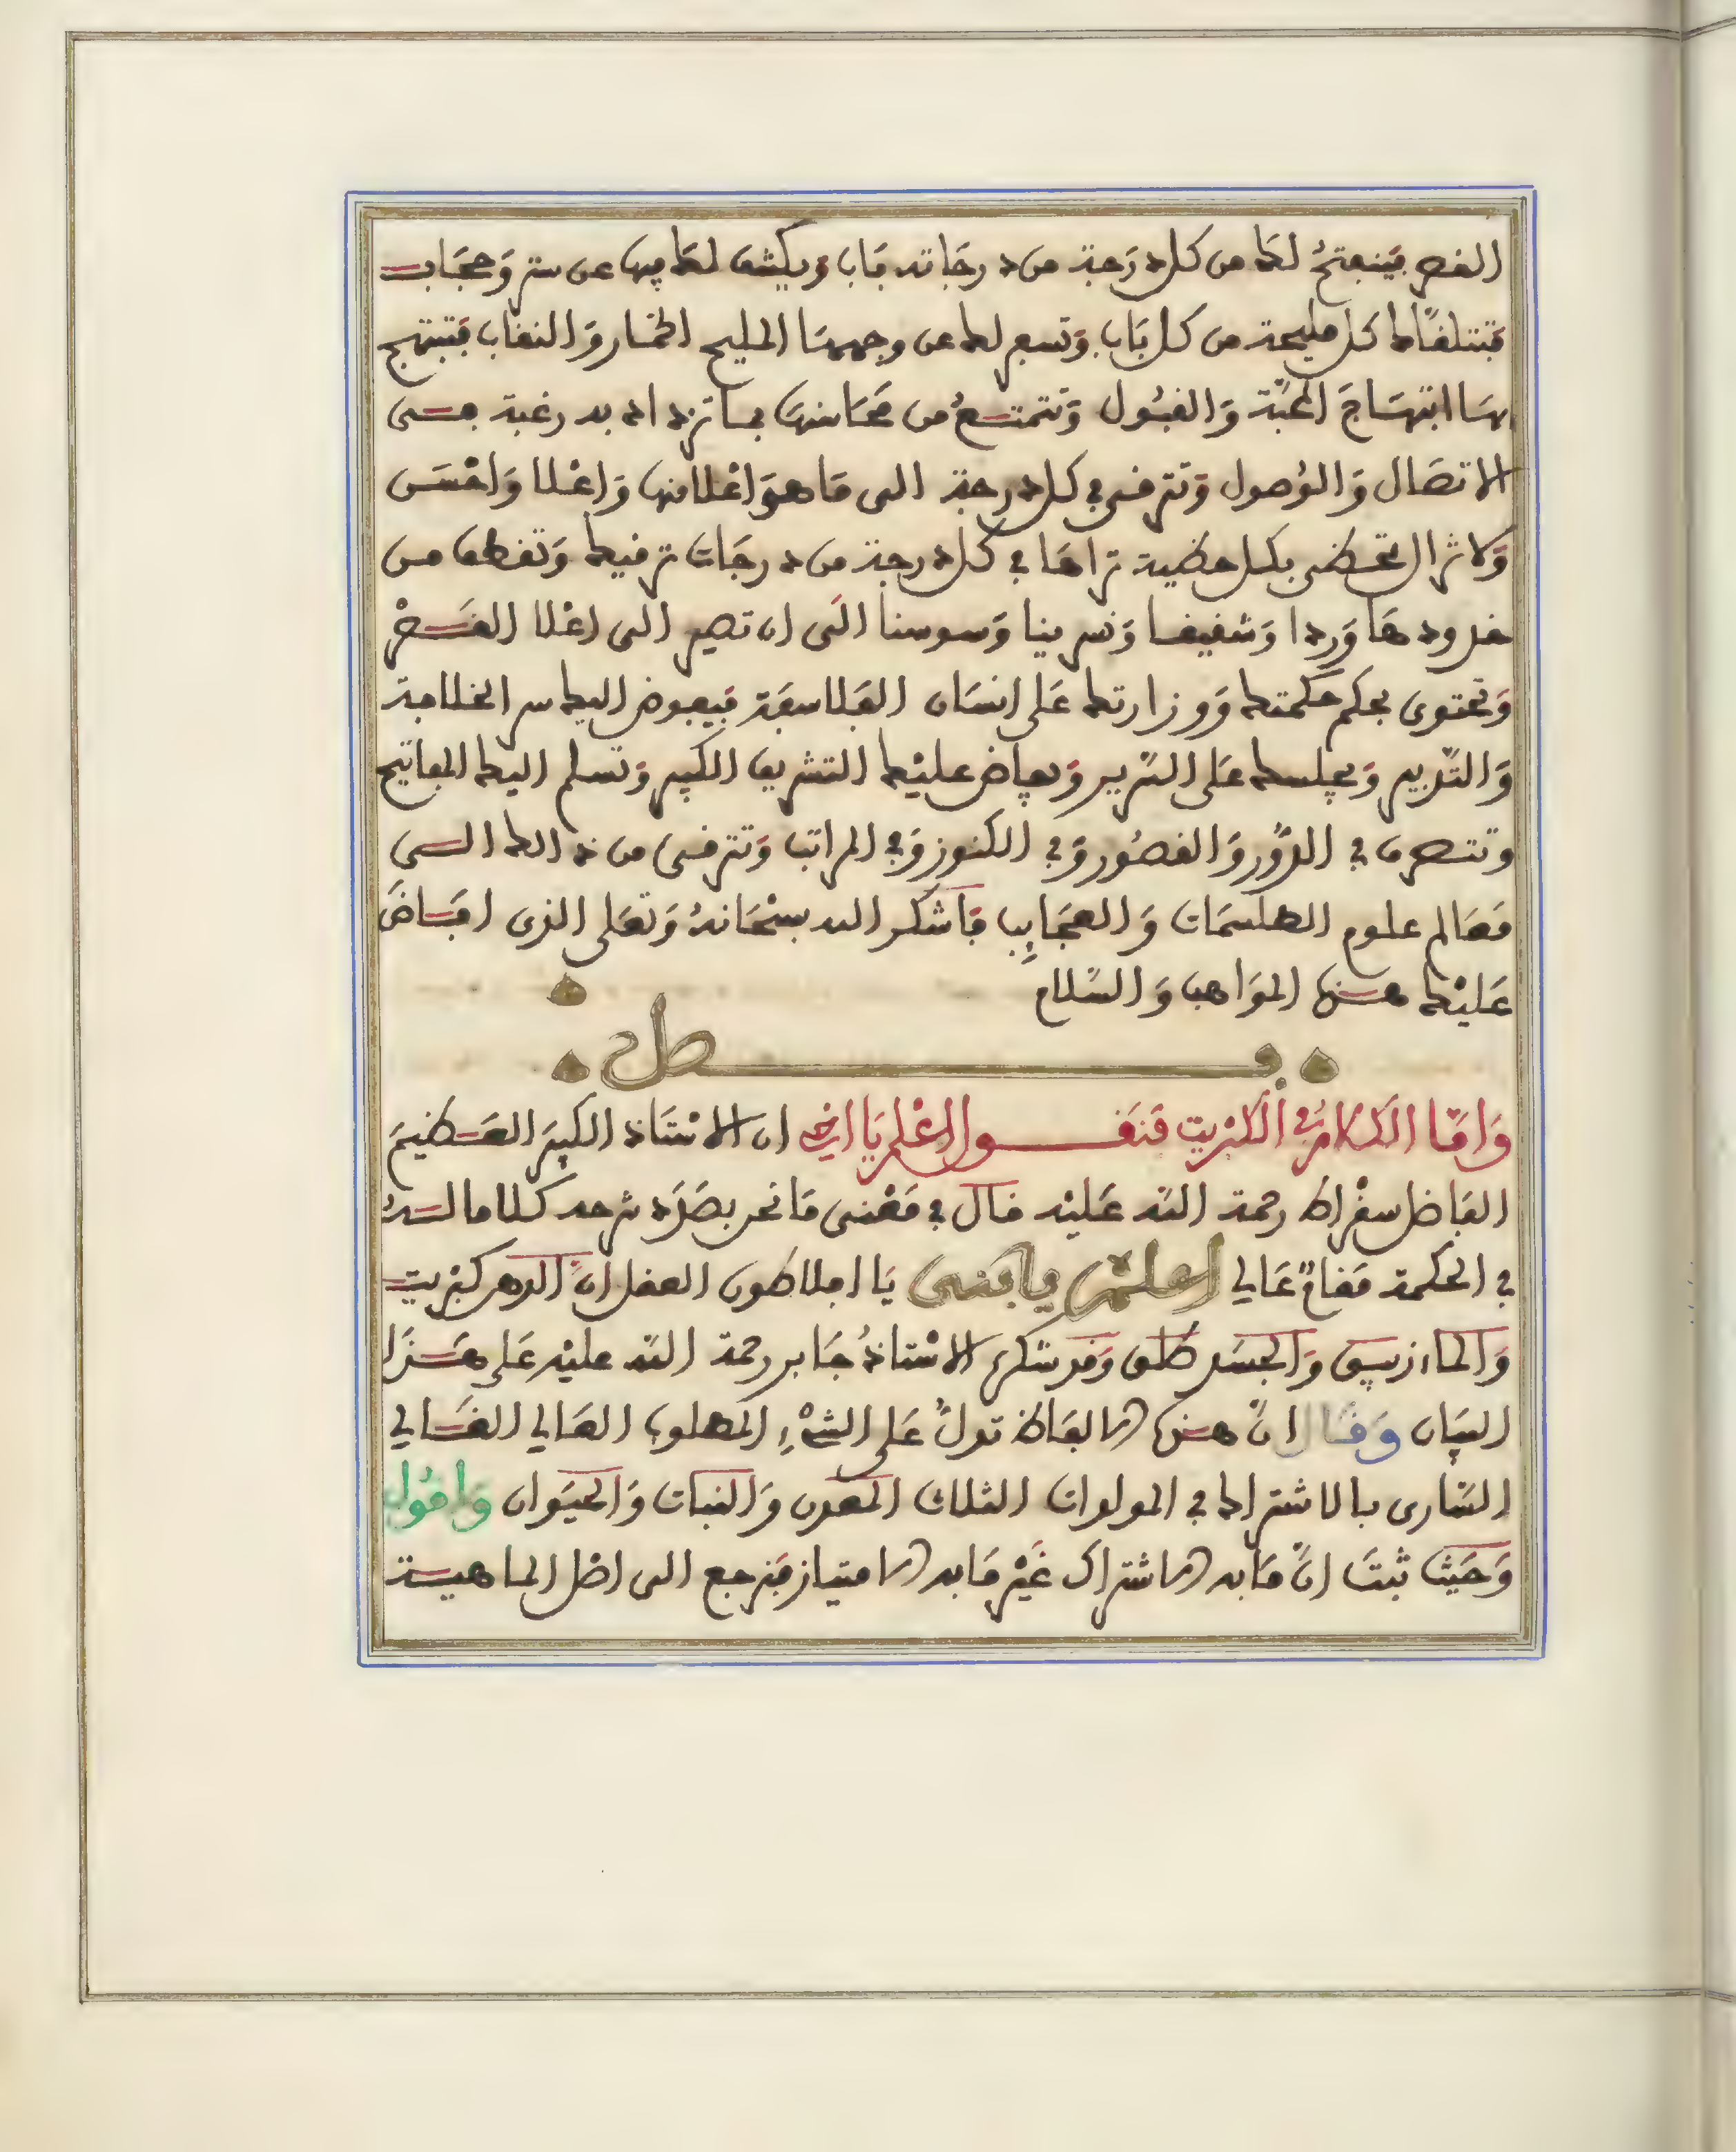 القصر فينفتحُ لك من كل درَجة من درجَاته بَاب ويكشف لك فيها عن ستر وَحجَاب
فتتلقاك كل مليحة من كل بَاب وَتسفر لك عن وجههَا المليح الخمار وَالنقاب فتبتهج
بهَا ابتهَاجَ المحَبّة وَالقبُول وَتتمتعُ من محَاسنهَا بما تزداد به رغبة في
الاتصَال وَالوُصول وَتترقى في كل درجة الى مَا هوَ اعْلا منها وَاغلا وَاحْسَن
وَلا تزال تحظى بكل حظية تراهَا في كل درجة من درجَات ترقيك وَتقطف من
خدودهَا وَردا وَشقيقا وَنسرينا وَسوسنا الَى ان تصير الى اعْلا القَصْر
وَتحتوى بحكم حكمتك وَوزارتك عَلى انسَان الفَلاسفَة فيفوض اليك سر الخلافة
وَالتّدبير وَيجلسك عَلى السّرير وَيفاض عليْك التشريف الكبير وَتسلم اليك المفاتيح
وتتصرف في الدُّور وَالقصُور وَفي الكنوز وَفي المراتب وَتترقى من ذالك الى
مَعَالم علوم الطلسمَات وَالعجَايِب فَاشكر الله سبْحَانهُ وَتعَلى الذى افَاضَ
عَليْك هذه الموَاهب وَالسّلام
فصل
وَامّا الكَلام في الكبْريت فنَقول اعْلم يَا اخى ان الاسْتَاذ الكبيرَ العَظيمَ
الفَاضل سقْراط رحمة اللّه عَليْه قال في مَعْنى مَا نحن بصَدَد شرحه كلاما لهُ
في الحكمة مَقامٌ عَالي اعلم يا بني يَا افلاطون العقل انّ الدهر كبْريت
وَالماء زيبق وَالجسَد طلق وَقد شكر الاسْتاذُ جَابر رحمة اللّه عليْه عَلى هَذا
البيَان وَقَال انّ هذه الالفاظ تدلُّ عَلى الشْىءِ المطلوب العَالي الغَالي
السّارى بالاشتراك في المولدات الثلاث المعْدن وَالنبَات وَالحيَوان وَاقُول
وَحَيْث ثبتَ انّ مَا به الاشتراك غَيْر مَا به الامتياز فنرجع الى اصْل الماهية